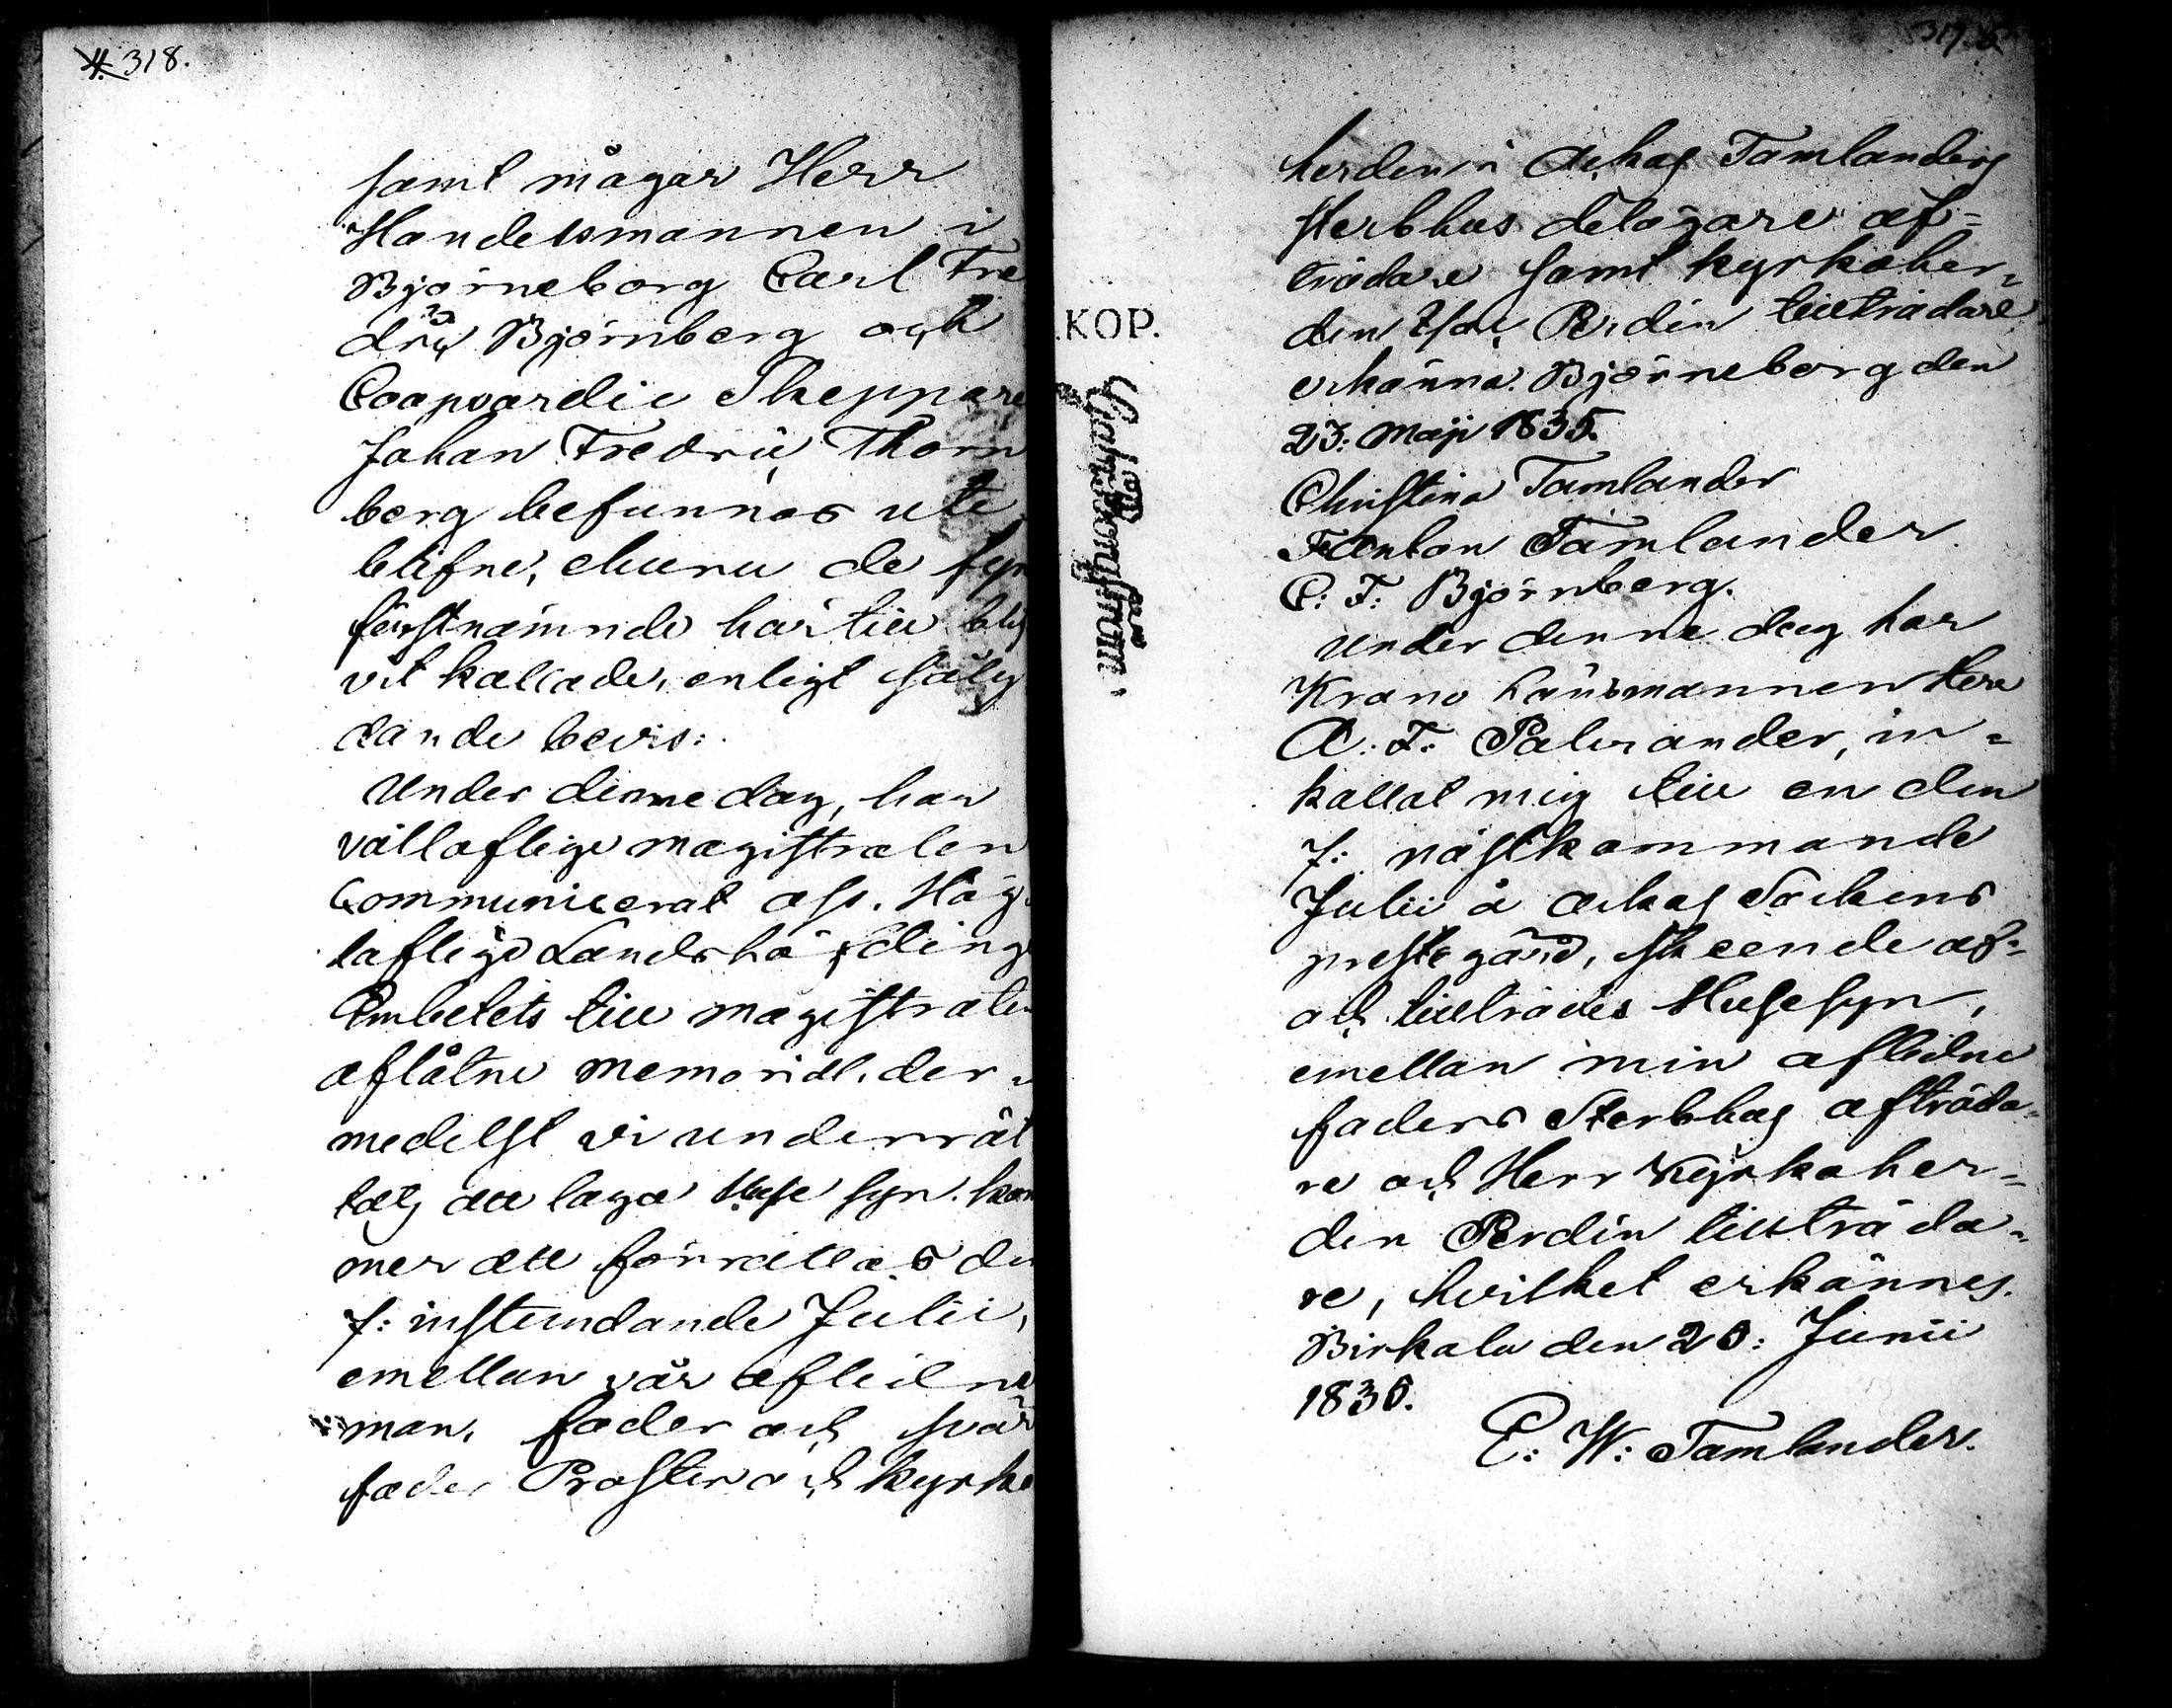 4. 318.
samt mågar Herr
Handelsmannen i
Björneborg Carl Fre
dric Björnberg och
Coopvardie Skeppare
Johan Fredric Thorn
berg befunnos ute
blifne, churu de syn
förstnämnde här till blif
vit kallade, enligt följ
dande bevis:
Under denne dag, har
vällofliga magistraten
Communicerat oss. Hög
lofliga Landshöfding
Embetets till magistraten
aflåtne memorial, der
medelst vi underrät
tas att laga Huse syn. kom
mer att förrättas den
7: instundande Julii,
emellan vår aflidne
man, fader och svär
fader Prosten och kyrko
319.
KOP.
herden i Ackas Tamlanders
sterbhus delägare af=
trädare samt kyrkoher=
den Isac Perdin tillträdare
erkänna. Björneborg den
23: Maji 1835.
Christina Tamlander
Tamlander
C: F: Björnberg.
Under denna dag har
Krono Länsmannen Herr
A. F: Palmander, in=
kallat mig till en den
7: nästkommande
Julii å Ackas Sockens
prestegård, skeende af=
och tillträdes Husesyn,
emellan min aflidne
faders Sterbhus afträda=
re och Herr Kyrkoher=
den Perdin tillträda=
re, hvilket erkännes.
Birkala den 20: Junii
1835.
E: W: Tamlander.